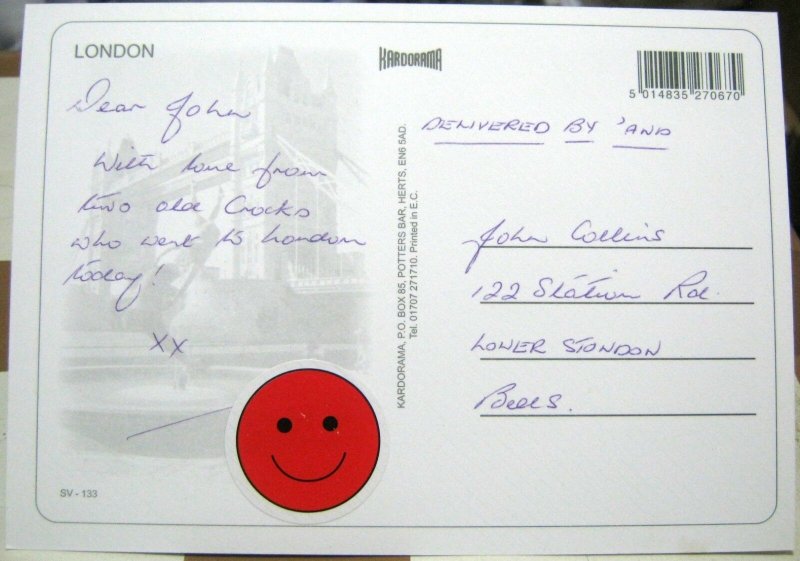 LONDON
KARDORAMA
5 014835 270670
Dear John
With love from
two olde Crocks
who went to London
today!
xx
SV - 133
KARDORAMA, P.O. BOX 85, POTTERS BAR, HERTS, EN6 5AD.
Tel. 01707 271710. Printed in E.C.
DELIVERED BY 'AND
John Collins
122 Station Rd.
LOWER STONDON
Beds.